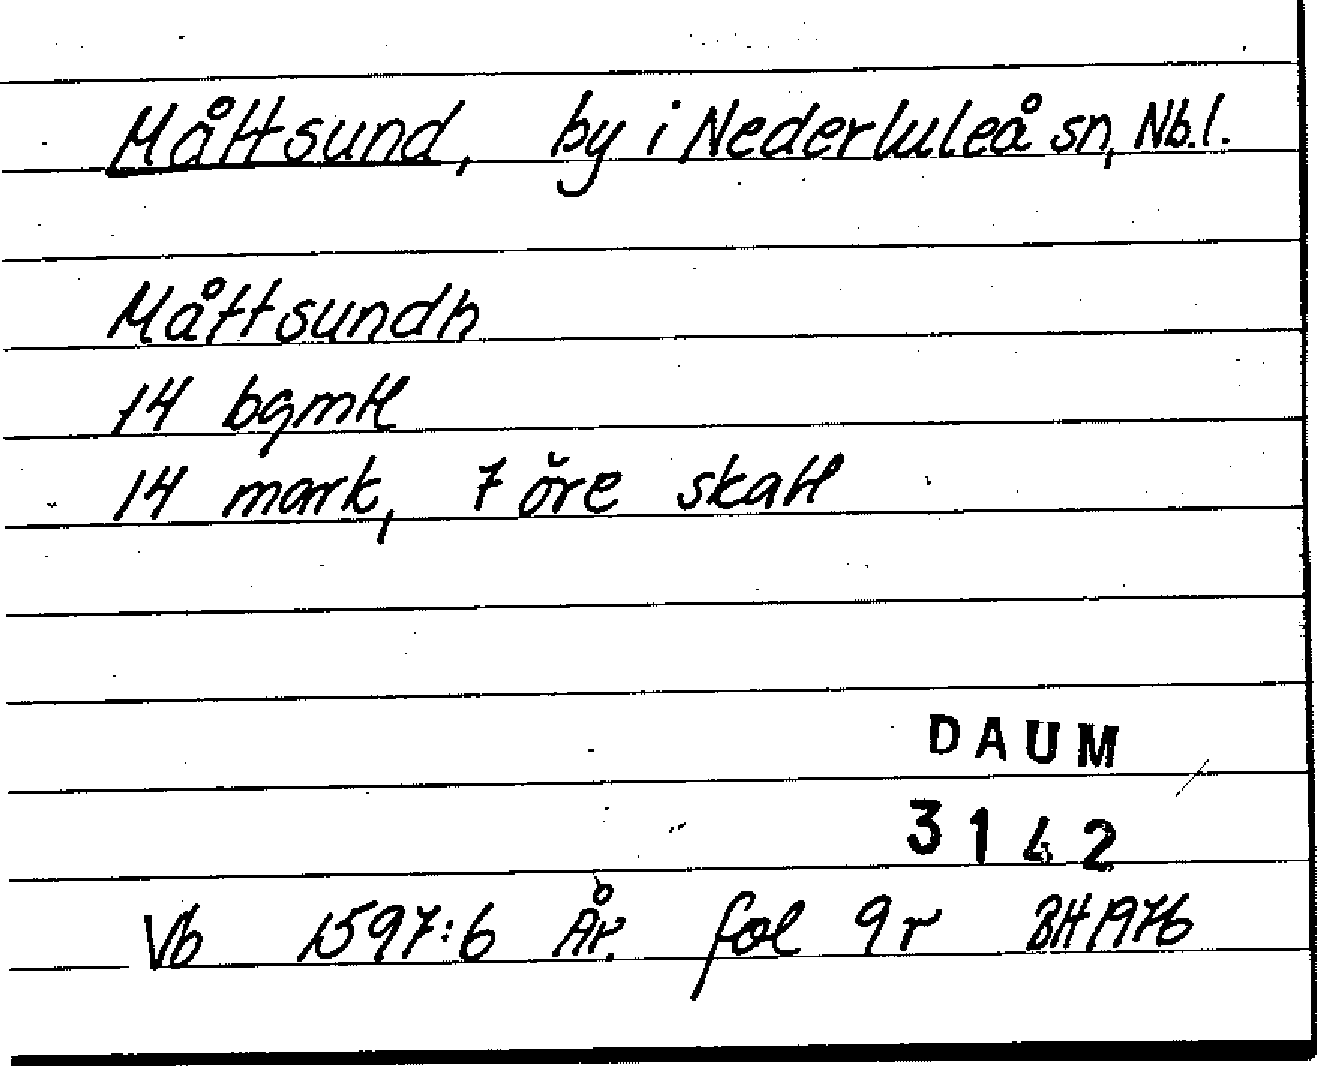 Måttsund, by i Nederluleå sn, Nb.l.
Måttsundh
14 bgmtl
14 mark, 7 öre skatt
DAUM
3142
Vb 1597:6 År. fol 9r BH 1976